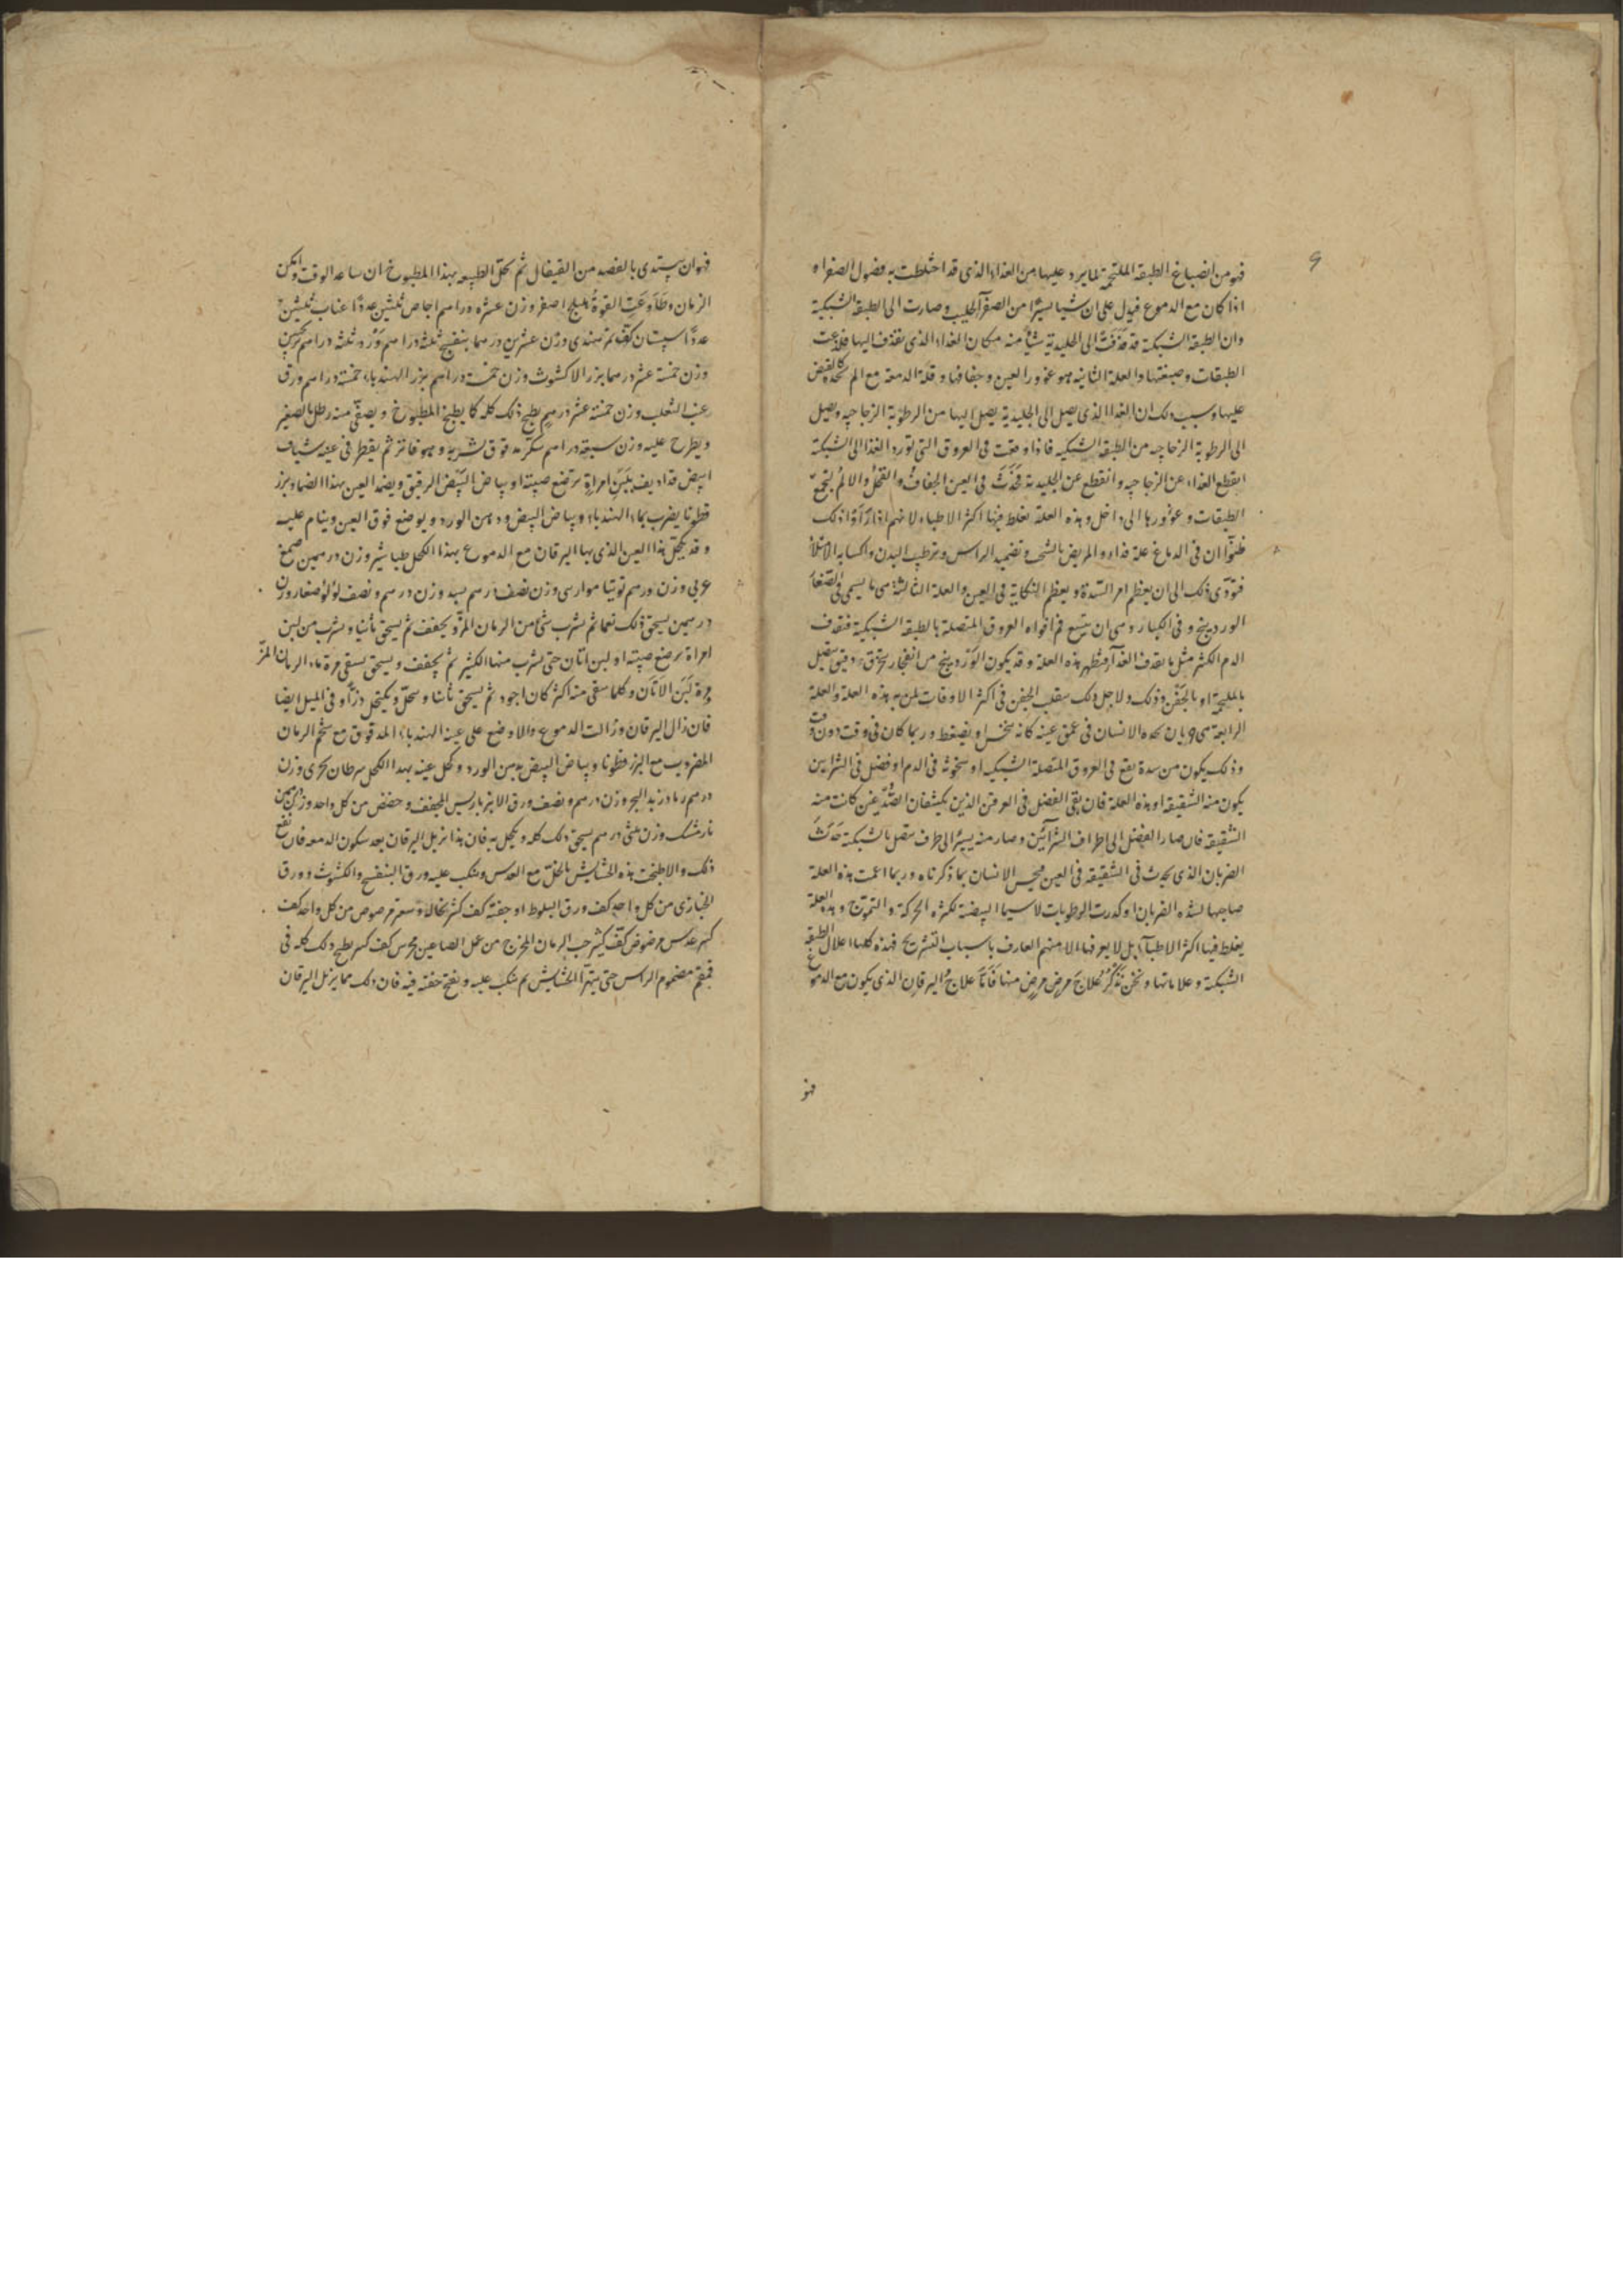 9
فهو من انصباغ الطبقة الملتحمة لما يرد عليها من الغذاء الذى قد اختلطت به فضول الصفراء
اذا كان مع الدموع فيدل على ان شيا يسيرا من الصفرآ الجليب وصارت الى الطبقة الشبكية
وان الطبقة الشبكية قد قذفت الى الجليدية شيأ منه مكان الغذاء الذى تقذف اليها فلذعت
الطبقات وصبغتها والعلة الثانيه هو غور العين وجفافها وقلة الدمعة مع الم تحده كالقبض
عليها وسبب ذلك ان الغذا الذى يصل الى الجليدية يصل اليها من الرطوبة الزجاجيه ويصل
الى الرطوبة الزجاجيه من الطبقة الشبكيه فاذا وقعت فى العروق التى تورد الغذا الى الشبكة
انقطع الغذاء عن الزجاجيه وانقطع عن الجليدية فحدث فى العين الجفاف والقحل والالم لتجمع
الطبقات وغورها الى داخل وهذه العلة يغلط فيها اكثر الاطباء لانهم اذا رأوا ذلك
ظنوا ان فى الدماغ علة فداووا المريض بالشحب وتضميد الراس وترطيب البدن واكسابه الامتلا
فيؤدى ذلك الى ان يعظم امر السدة ويعظم النكاية فى العين والعلة الثالثة هى ما يسمى فى الصغار
الوردينج وفى الكبار وهى ان يتسع فم افواه العروق المتصلة بالطبقة الشبكية فتقذف
الدم الكثير مثل ما يقذف الغذآ فتظهر هذه العلة وقد يكون الوردينج من انفجار عرق دقيق يتصل
بالملتحمة او بالجفن وذلك ولاجل ذلك ينقلب الجفن فى اكثر الاوقات لمن به هذه العلة والعلة
الرابعة هى ضربان يحده الانسان فى عمق عينه كانه ينخس او يضغط وربما كان فى وقت دون وقت
وذلك يكون من سدة يقع فى العروق المتصلة الشبكيه او سخونة فى الدم او فضل فى الشرايين
يكون منه الشقيقة او هذه العلة فان بقى الفضل فى العرقين الذين يكشفان الصدغين كانت منه
الشقيقة فان صار الفضل الى اطراف الشرآئين وصار منه يسيرا الى طرف متصل بالشبكية حدث
الضربان الذى يحدث فى الشقيقه فى العين فيحس الانسان بما ذكرناه وربما اعمت هذه العلة
صاحبها لشده الضربان او كدرت الرطوبات لا سيما البيضية لكثرة الحركة والتموج وهذه العلة
يغلط فيها اكثر الاطبآء بل لا يعرفها الا منهم العارف باسباب التشريح فهذه كلها اعلال الطبقة
الشبكية وعلاماتها ونحن نذكر علاج مرض مرض منها فاما علاج اليرقان الذى يكون مع الدموع
فهو
فهو ان يبتدى بالفصد من القيفال ثم يحل الطبيعه بهذا المطبوخ ان ساعد الوقت وامكن
الزمان وطاوعت القوة هليلج اصفر وزن عشره دراهم اجاص ثلثين عددا عناب ثلثين
عددا سپستان كف تمر هندى وزن عشرين درهما بنفسج ثلثه دراهم ورد ثلثه دراهم ترنجبين
وزن خمسة عشر درهما بزر الاكشوث وزن خمسة دراهم بزر الهندباء خمسة دراهم ورق
عنب الثعلب وزن خمسة عشر درهم يطبخ ذلك كله كما يطبخ المطبوخ ويصفى منه رطل بالصغير
ويطرح عليه وزن سبعة دراهم سكر فوق شربه وهو فاتر ثم يقطر فى عينه شياف
ابيض قد اديف بلبن امراة ترضع صبيته او بياض البيض الرقيق ويضمد العين بهذا الضماد بزر
قطونا يضرب بماء الهندباء وبياض البيض ودهن الورد ويوضع فوق العين وينام عليه
وقد يكحل هذا العين الذى بها اليرقان مع الدموع بهذا الكحل طباشير وزن درهمين صمغ
عربى وزن درهم توتيا موارسى وزن نصف درهم بسد وزن درهم ونصف لؤلؤ صغار وزن
درهمين يسحق ذلك نعما ثم يشرب شئ من الرمان المز ويجفف ثم يسحق ثانيا ويشرب من لبن
امراة ترضع صبيته او لبن اتان حتى يشرب منها الكثير ثم يجفف ويسحق يسقى مرة ماء الرمان المز
ومرة لبن الاتان وكلما سقى منه اكثر كان اجود ثم يسحق ثانيا وينحل ويكتحل ذرا وفى الميل ايضا
فان زال اليرقان وزالت الدموع والا وضع على عينه الهندباء المدقوق مع شحم الرمان
المضروب مع البزر قطونا وبياض البيض بدهن الورد وكحل عينه بهذا الكحل سرطان بحرى وزن
درهم رماد زبد البحر وزن درهم ونصف ورق الانبرباريس المجفف وحضض من كل واحد وزن درهمين
نارمشك وزن ثلثى درهم يسحق ذلك كله ويكحل به فان هذا يزيل اليرقان بعد سكون الدمعه فان نفع
ذلك والا طبخت هذه الحشايش بالخل مع العدس وينكب عليه ورق البنفسج والكشوث وورق
الخبازى من كل واحد كف ورق البلوط او جفته كف كثر نخالة وسعتر مرصوص من كل واحد كف
كبير عدس مرضوض كف كثير حب الرمان المخرج من عمل الصاعين مجرس كف كبير يطبخ ذلك كله فى
قمقم مضموم الراس حتى يتهرا الحشايش ثم ينكب عليه ويفتح جفنه فيه فان ذلك مما يزيل اليرقان